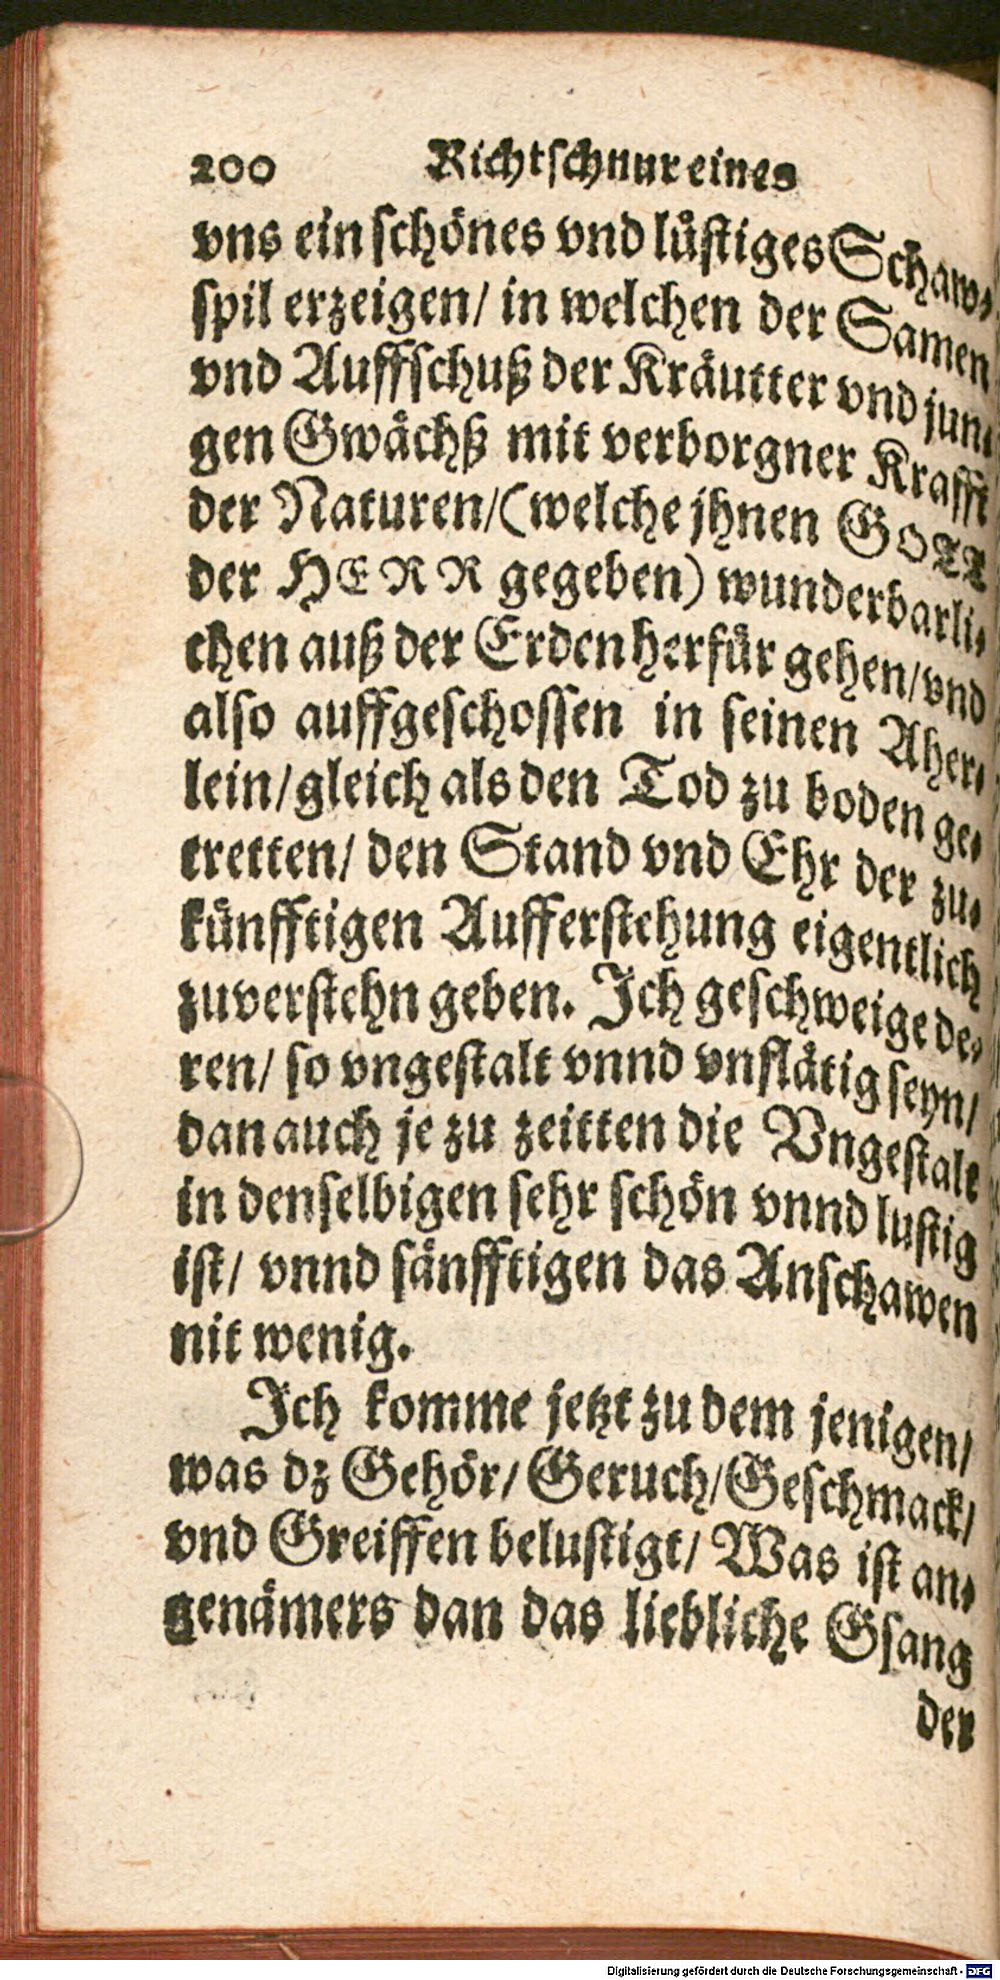 200 Richtschnur eines
vns ein schönes vnd lüstiges Schaw-
spil erzeigen/ in welchen der Samen
vnd Auffschuß der Kräutter vnd jun-
gen Gwächß mit verborgner Krafft
der Naturen/ (welche jhnen GOTT
der HERR gegeben) wunderbarli-
chen auß der Erden herfür gehen/ vnd
also auffgeschossen in seinen Äher-
lein/ gleich als den Tod zu boden ge-
tretten/ den Stand vnd Ehr der zu-
künfftigen Aufferstehung eigentlich
zuverstehn geben. Ich geschweige de-
ren/ so vngestalt vnnd vnflätig seyn/
dan auch je zu zeitten die Vngestalt
in denselbigen sehr schön vnnd lustig
ist/ vnnd sänfftigen das Anschawen
nit wenig.
Ich komme jetzt zu dem jenigen/
was dz Gehör/ Geruch/ Geschmack/
vnd Greiffen belustigt/ Was ist an-
genämers dan das liebliche Gsang
der
Digitalisierung gefördert durch die Deutsche Forschungsgemeinschaft - DFG